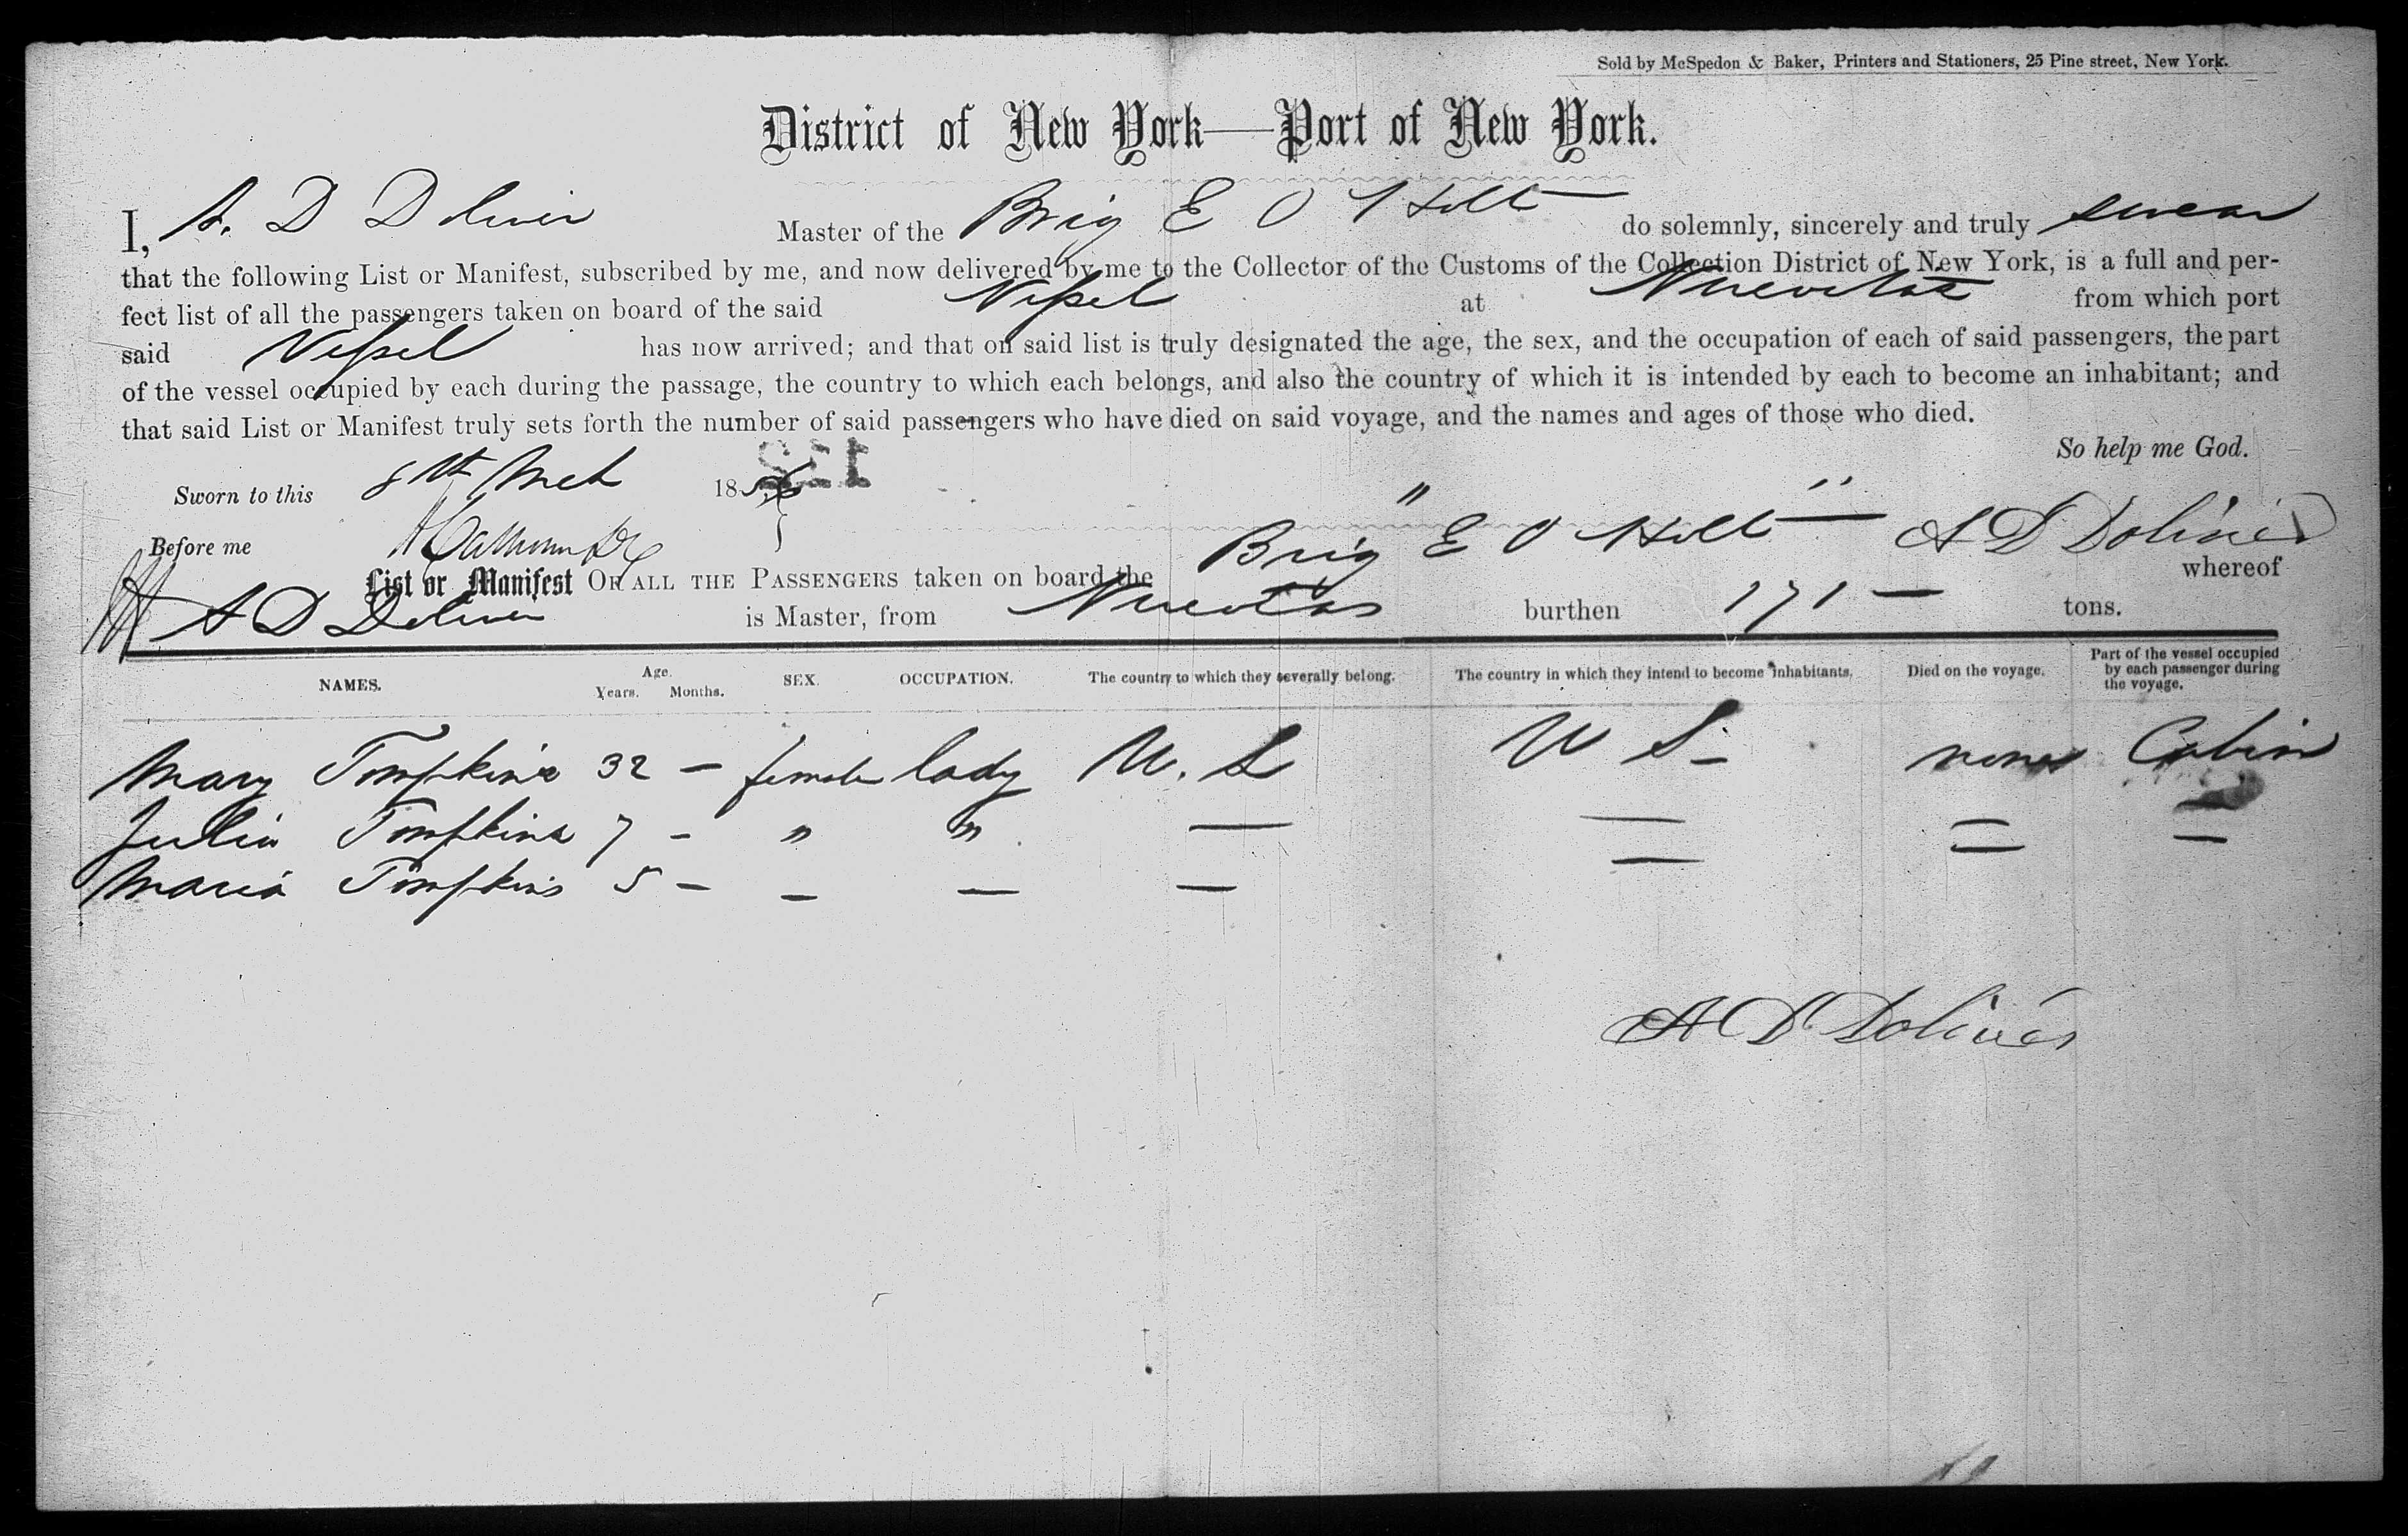 Sold by McSpedon & Baker, Printers and Stationers, 25 Pine street, New York.
District of New York—Port of New York.
I, A. D Doliver Master of the Brig E O Holt do solemnly, sincerely and truly swear
that the following List or Manifest, subscribed by me, and now delivered by me to the Collector of the Customs of the Collection District of New York, is a full and per-
fect list of all the passengers taken on board of the said Vessel at Nuevitas from which port
said Vessel has now arrived; and that on said list is truly designated the age, the sex, and the occupation of each of said passengers, the part
of the vessel occupied by each during the passage, the country to which each belongs, and also the country of which it is intended by each to become an inhabitant; and
that said List or Manifest truly sets forth the number of said passengers who have died on said voyage, and the names and ages of those who died.
So help me God.
Sworn to this 8th Mch 1856
132
A D Doliver
Before me
List or Manifest OF ALL THE PASSENGERS taken on board the Brig "E O Holt" whereof
A D Doliver is Master, from Nuevitas burthen 171 — tons.
NAMES. Age. Years. Months. SEX. OCCUPATION. The country to which they severally belong. The country in which they intend to become inhabitants. Died on the voyage. Part of the vessel occupied by each passenger during the voyage.
Mary Tompkins 32 – female lady U. S U S – none Cabin
Julia Tompkins 7 – " " — — — —
Maria Tompkins 5 – – — — — —
A D Doliver